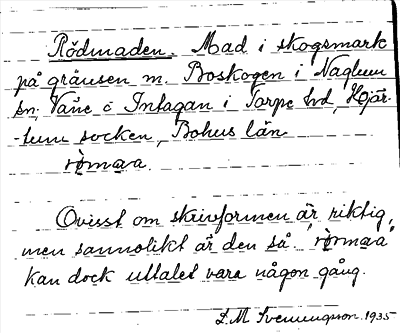 Rödmaden. Mad i skogsmark
på gränsen m. Boskogen i Naglum
sn, Väne o Intagan i Torpe hd, Hjär-
-tum socken, Bohus län
römaa.
Ovisst om skrivformen är riktig,
men sannolikt är den så. römaa
kan dock uttalet vara någon gång.
L.M. Svenungsson 1935